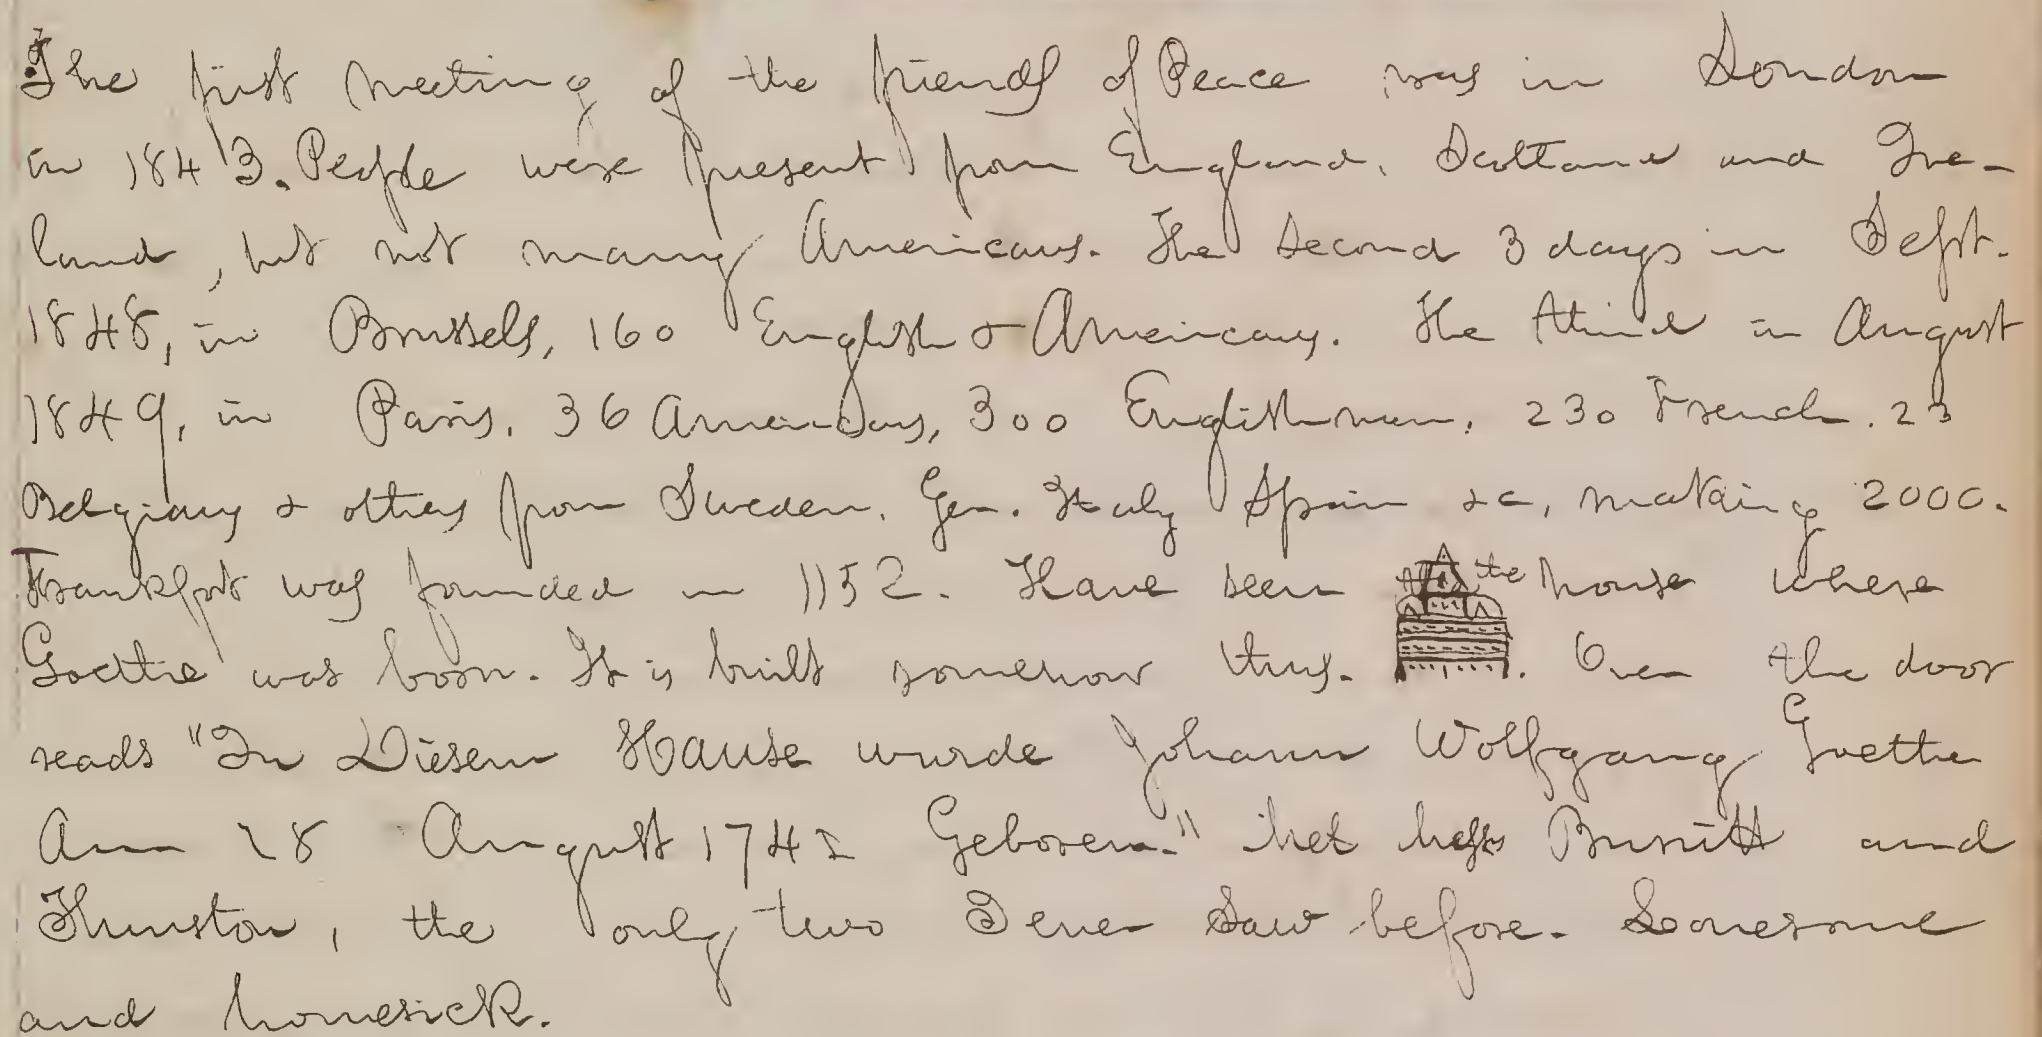 The first meeting of the friends of Peace was in London
in 1843. People were present from England, Scotland and Ire-
land, but not many Americans. The second 3 days in Sept.
1848, in Brussels, 160 English & Americans. The third in August
1849, in Paris. 36 Americans, 300 Englishmen, 230 French. 23
Belgians & others from Sweden, Ger. Italy Spain &c, making 2000.
Frankfort was founded in 1152. Have seen the house where
Goethe was born. It is built somehow thus. Over the door
reads "In Diesem Hause wurde Johann Wolfgang Goethe
Am 28 August 174 Geboren." Met Burritt and
Thurston, the only two I ever saw before. Lonesome
and homesick.